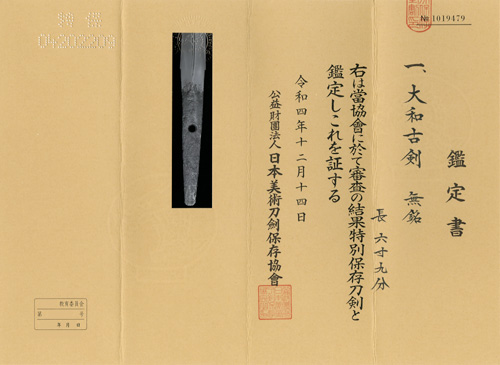 № 1019479
鑑定書
一、大和古剣 無銘
長 六寸九分
右は當協會に於て審査の結果特別保存刀剣と
鑑定しこれを証する
令和四年十二月十四日
公益財團法人 日本美術刀劍保存協會
教育委員会
第 号
年 月 日